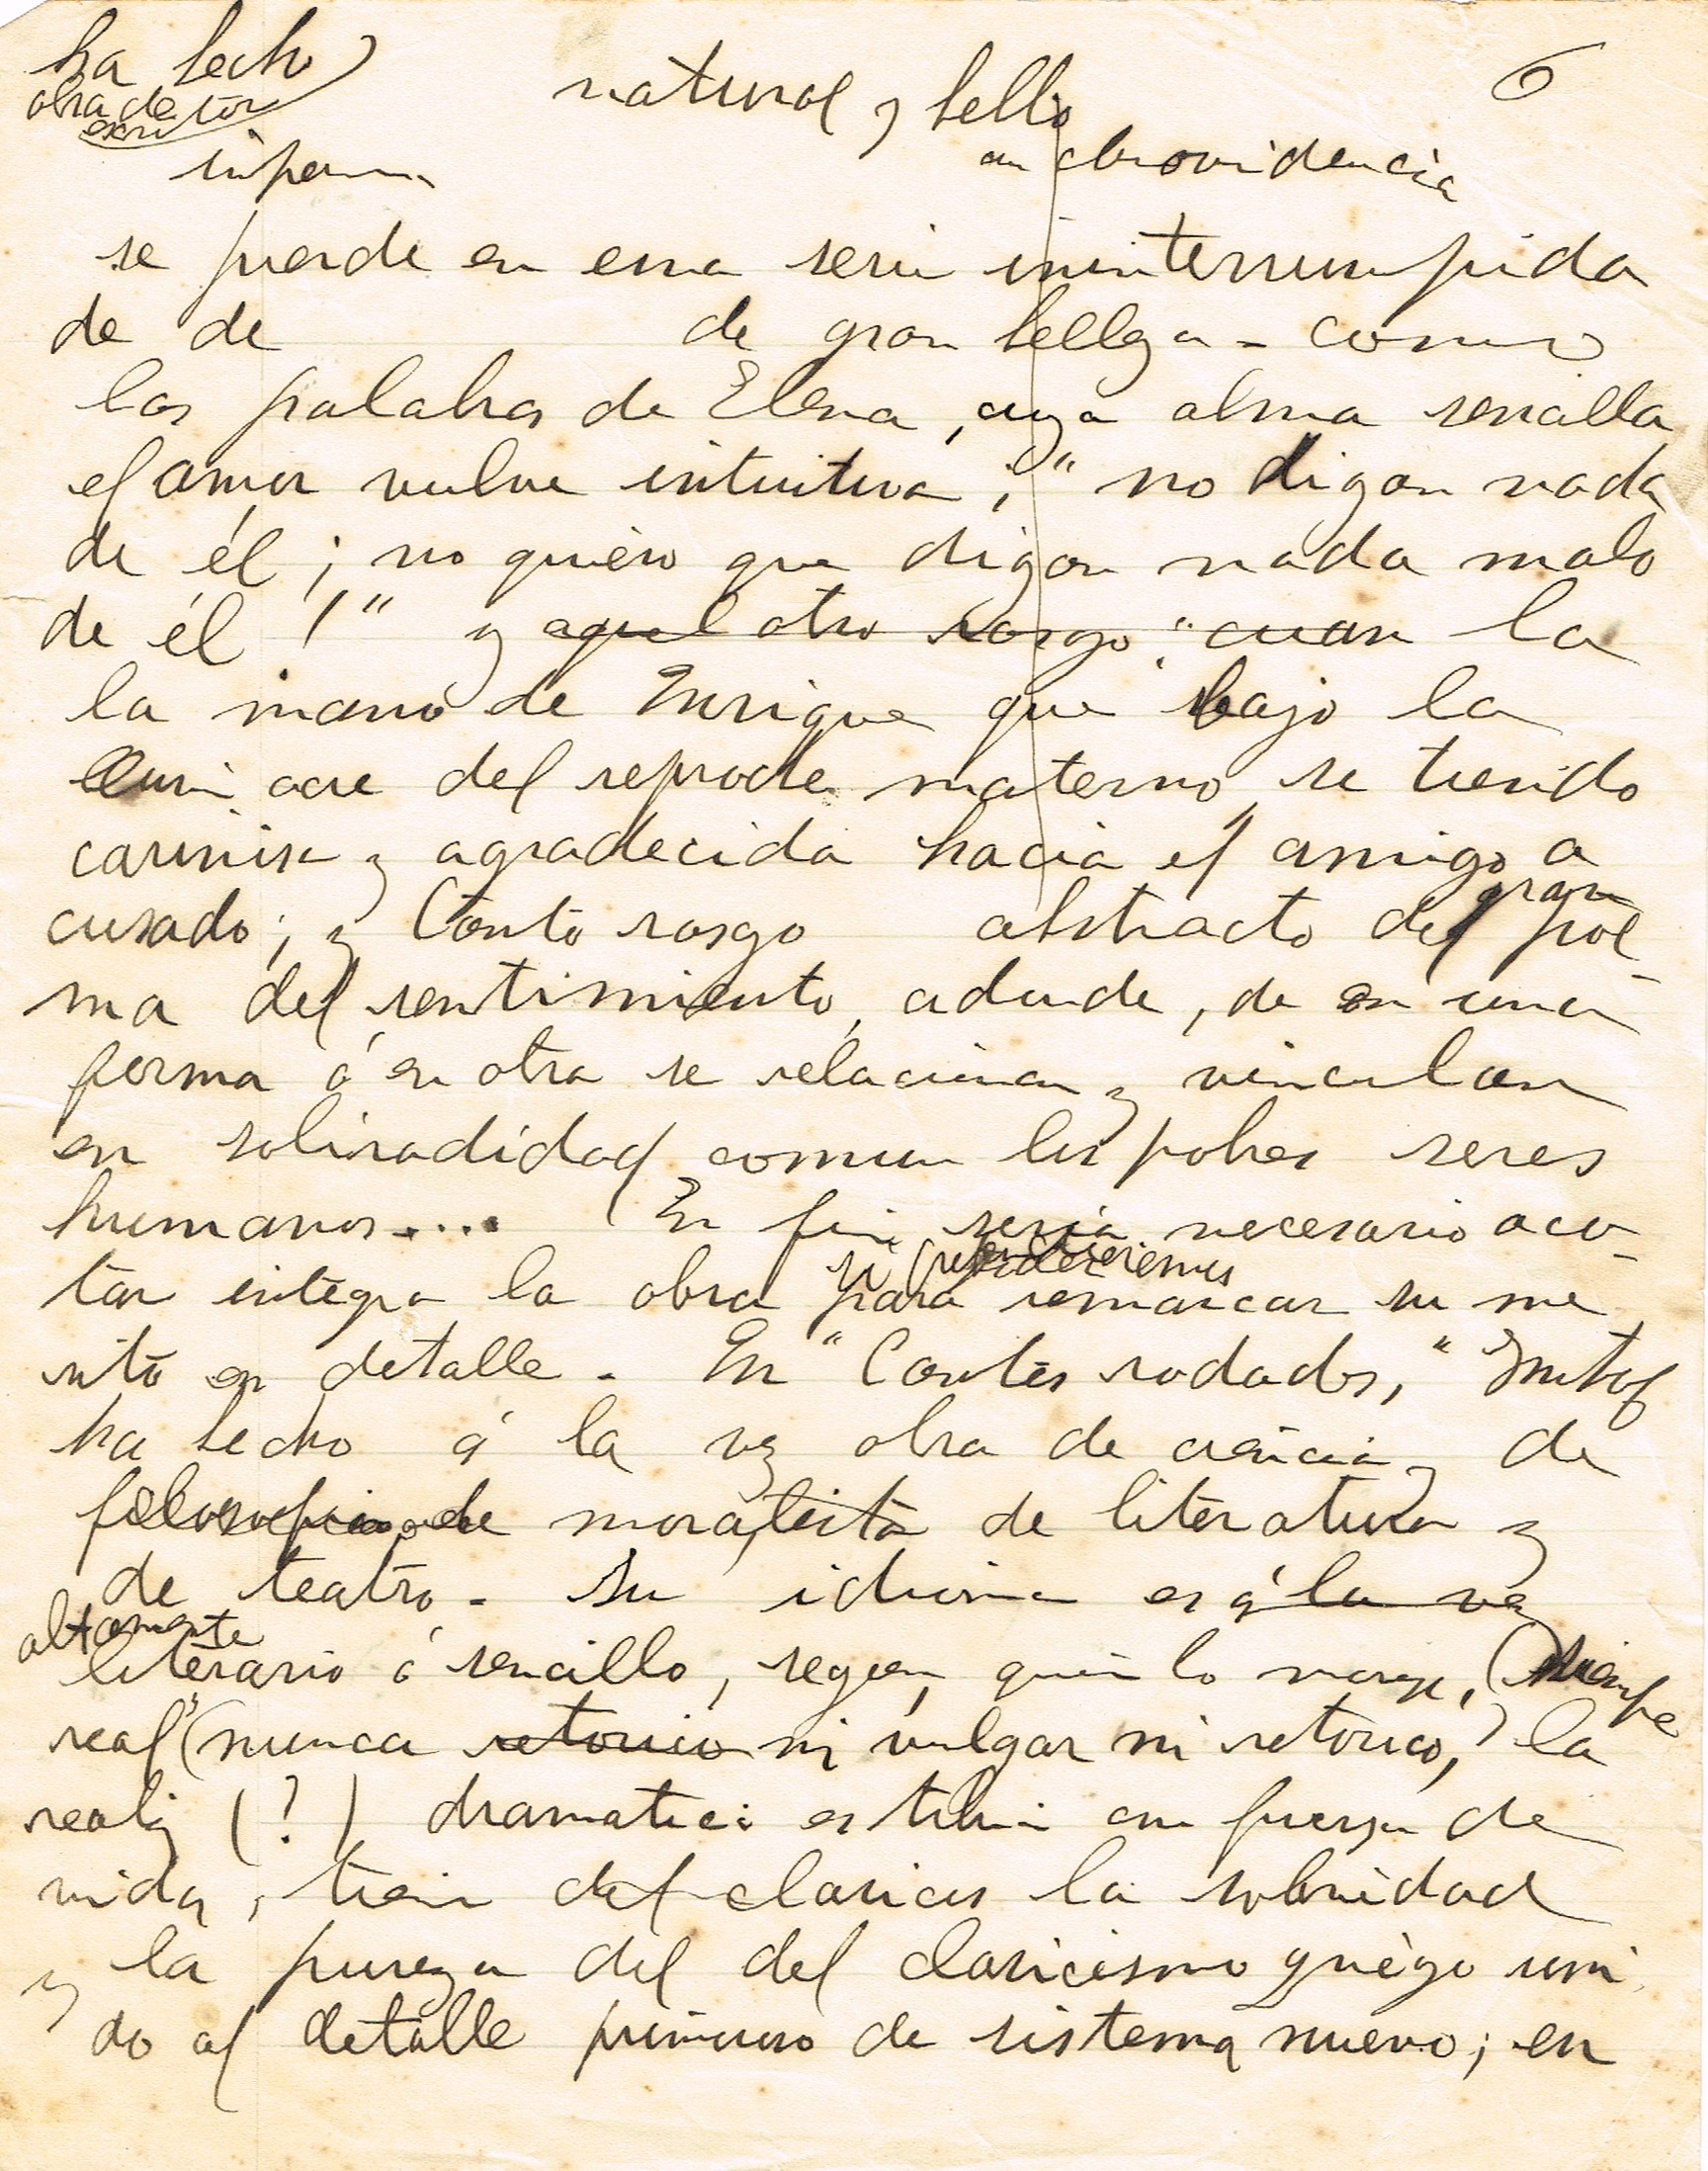 ha hecho
obra de
escritor
natural y bello
6
con clarovidencia
se pierde en una serie ininterrumpida
de de de gran belleza - como
las palabras de Elena, cuya alma sencilla
el amor vuelve intuitiva; "no digan nada
de él; no quiero que digan nada malo
de él!" y aquel otro rasgo: "cuan la
la mano de Enrique que bajo la
acre del reproche materno, se tiende
cariñosa y agradecida hacia el amigo a
cusado; y tanto rasgo abstracto del gran poe-
ma del sentimiento, adonde, de en una
forma ó en otra se relacionan y vinculan
en soliradidad comun los pobres seres
humanos.... En fin seria necesario aco-
tar integra la obra para si pretendieremos remarcar su me
rito en detalle. En "Cantos rodados,"
ha hecho á la vez obra de ciencia y de
filosofia de moralista de literatura y
de teatro. Su idioma es á la vez
altamente
literario ó sencillo, segun, quien lo maneje, (siempre
real" (nunca retorico ni vulgar ni retorico,) la
realiz (?) dramatica es tibia con fuerza de
vida, tiene del clasicos la sobriedad
y la pureza del del clasicismo griego uni
do al detalle de sistema nuevo; en